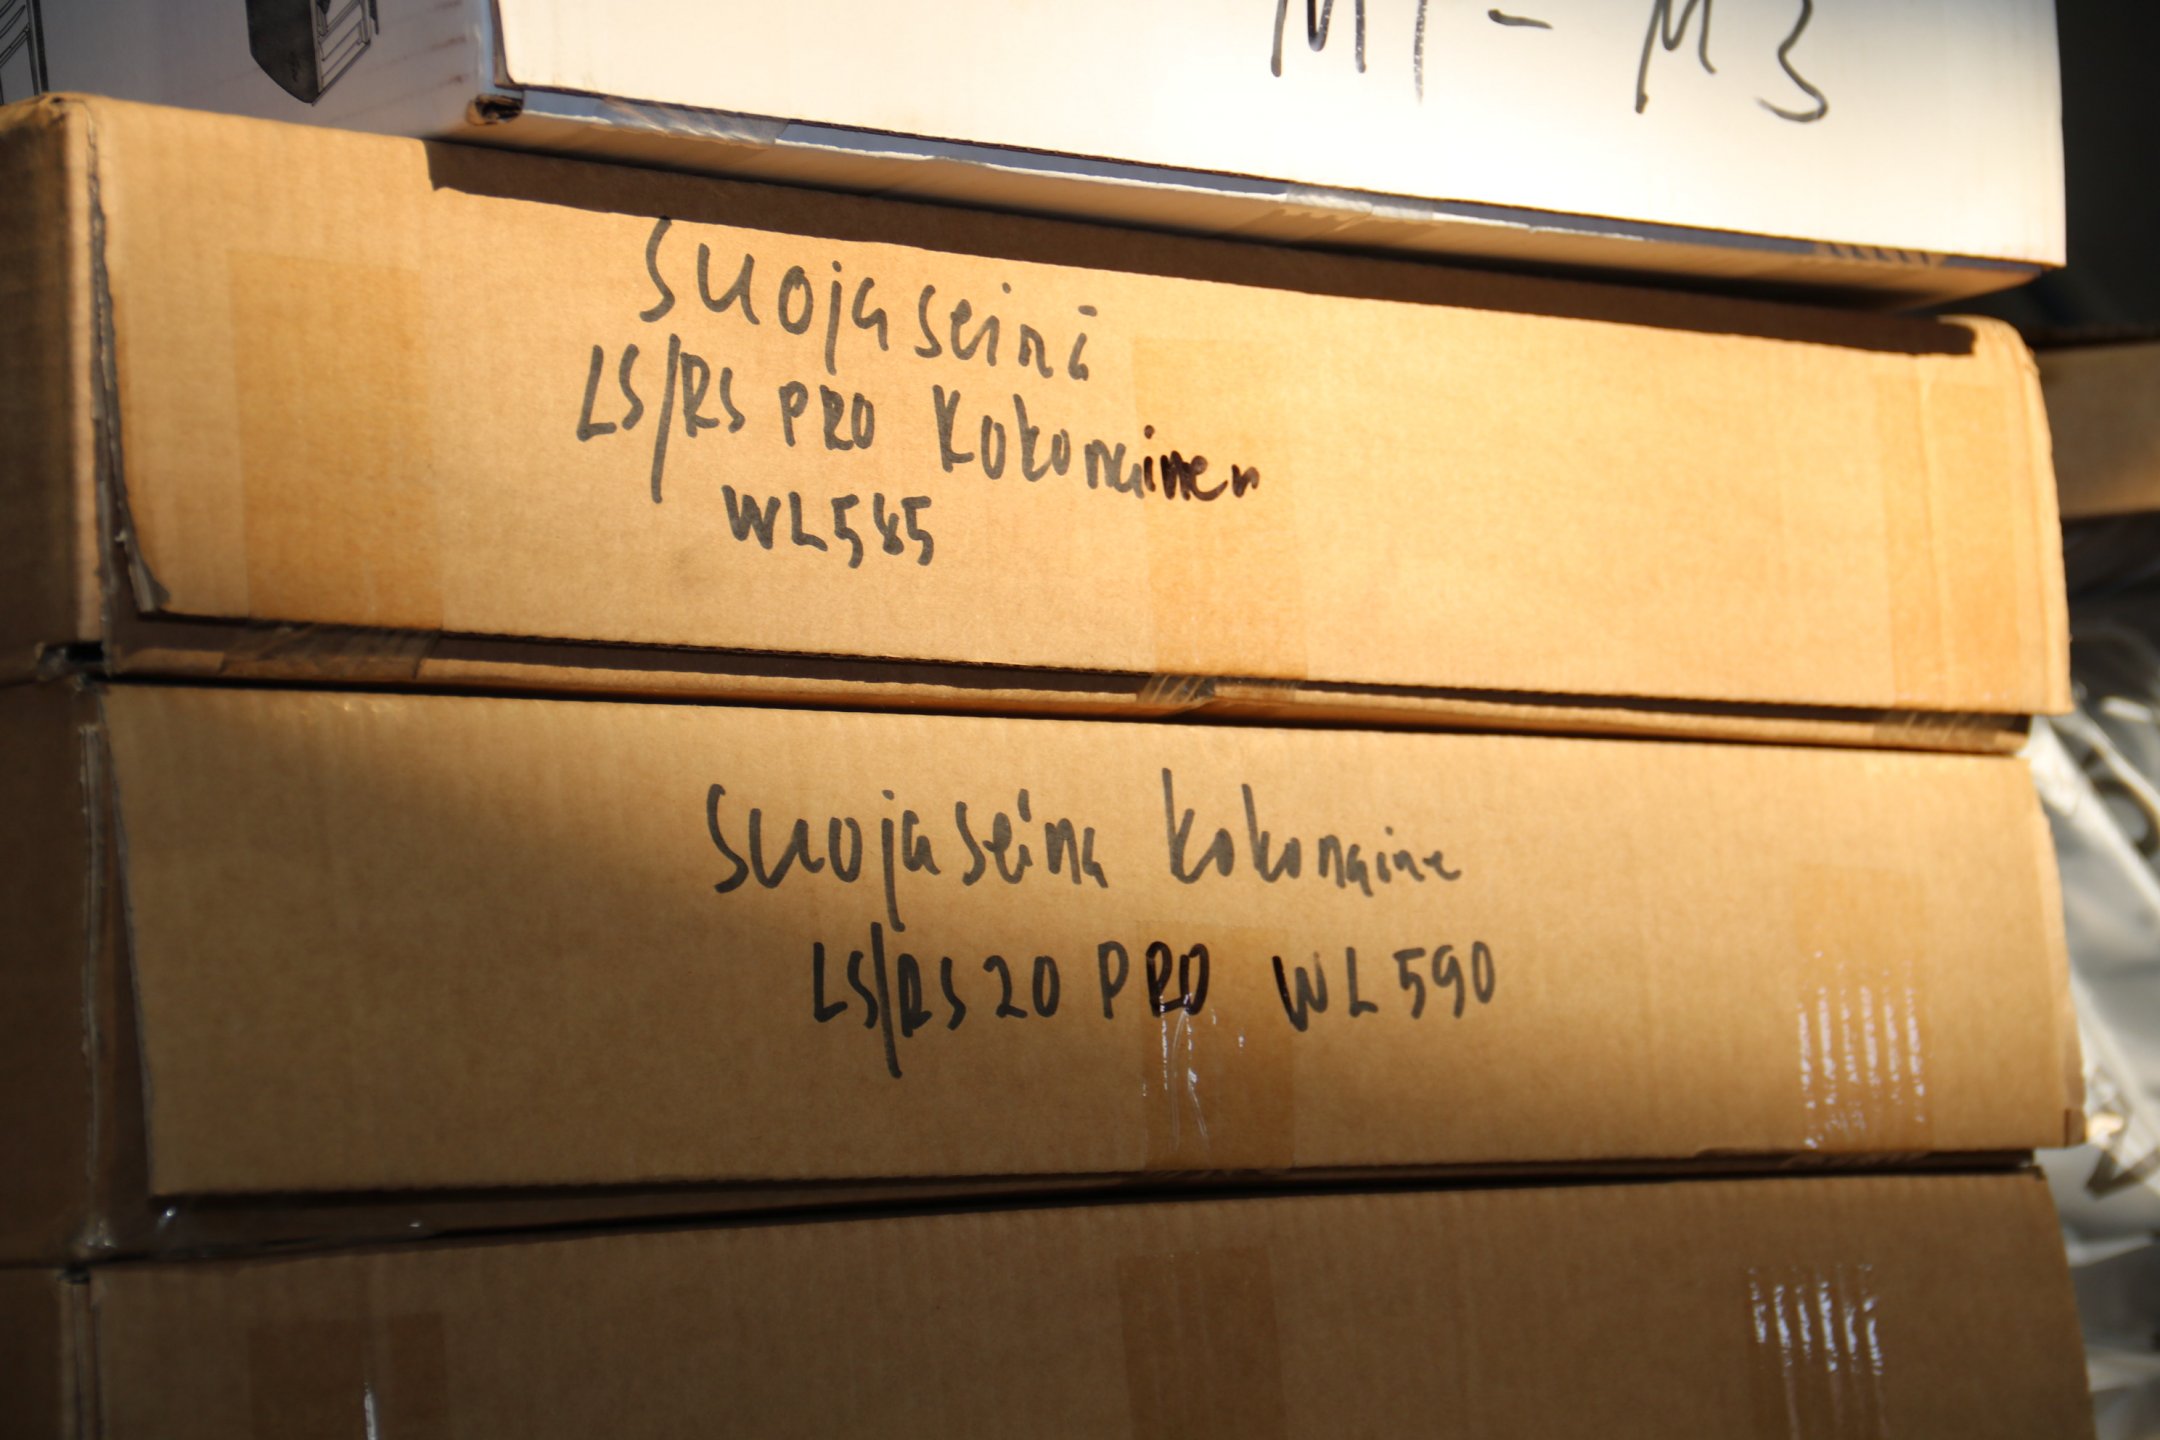 M1 - M3
Suojaseinä
LS/RS PRO Kokonainen
WL585
Suojaseina kokonaine
LS/RS 20 PRO WL590